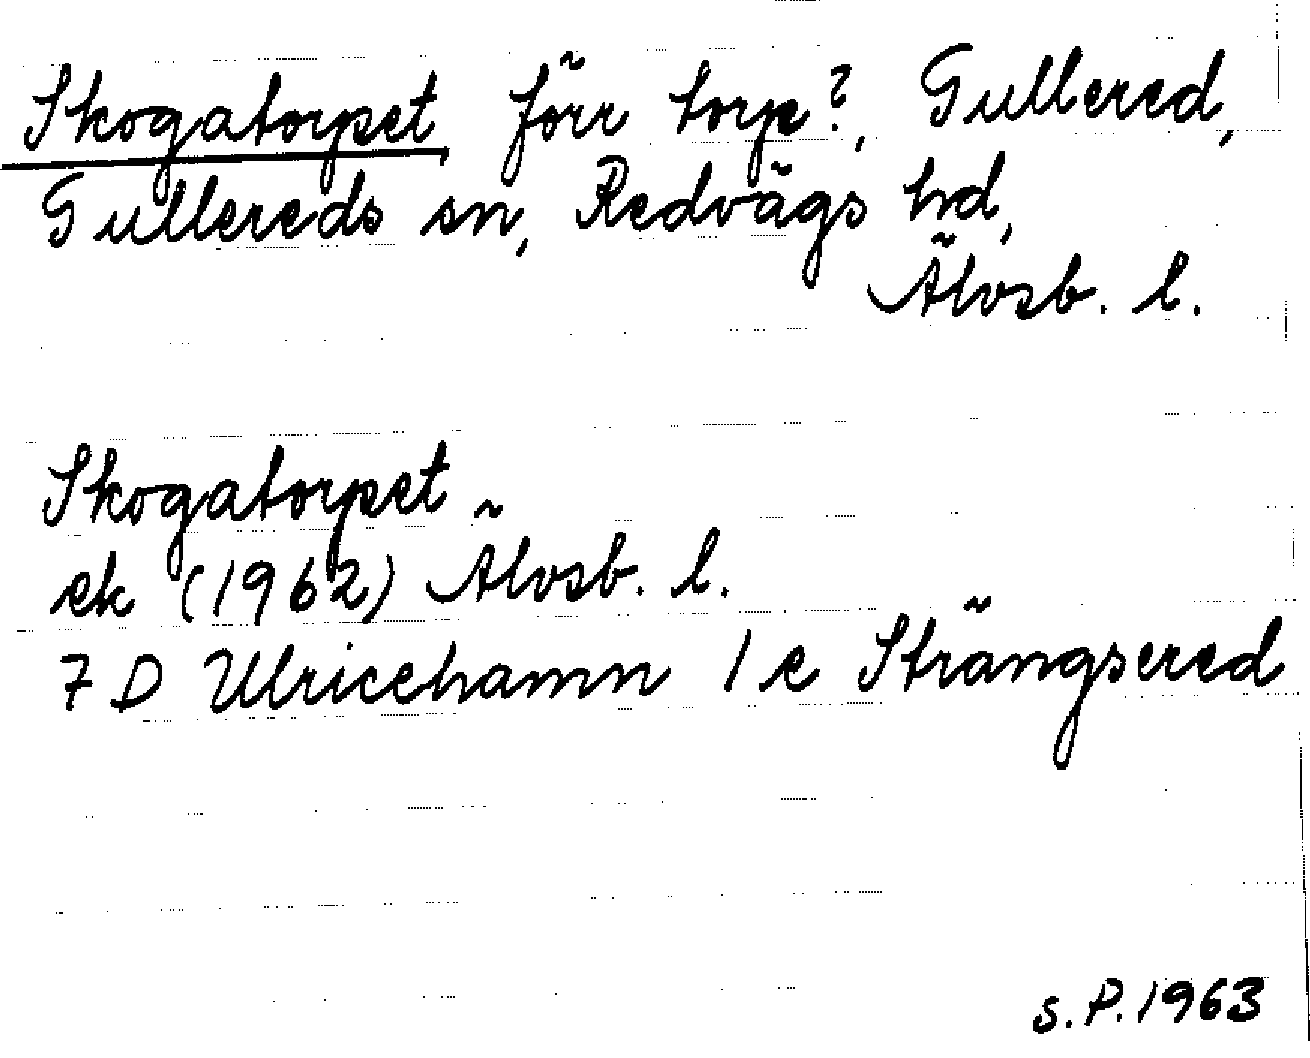 Skogatorpet, förr torp?, Gullered,
Gullereds sn, Redvägs hd,
Älvsb. l.
Skogatorpet
ek (1962) Älvsb. l.
7 D Ulricehamn 1 e Strängsered
S.P. 1963